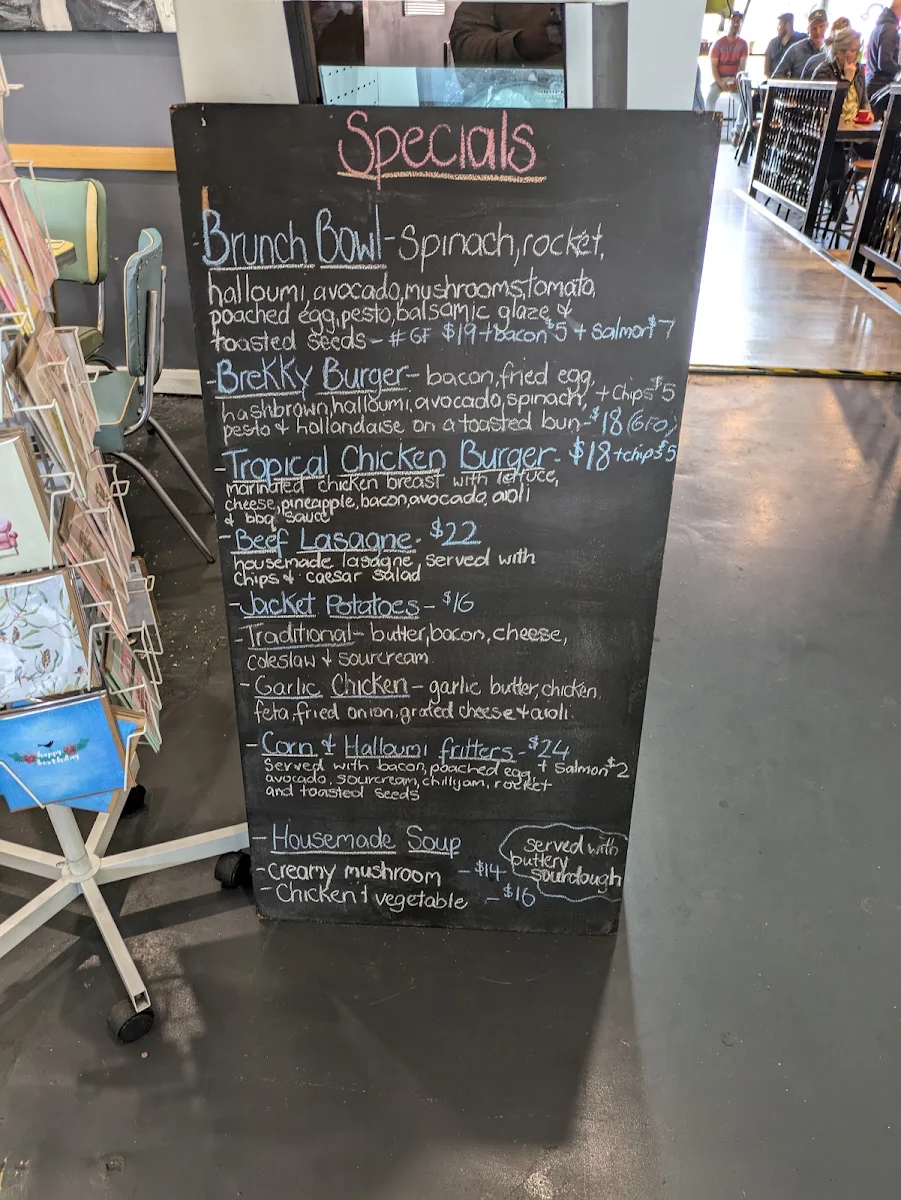 Specials
-Brunch Bowl-Spinach,rocket,
halloumi,avocado,mushrooms,tomato,
poached egg,pesto,balsamic glaze &
toasted seeds-#GF $19+bacon $5 + Salmon $7
-BreKKy Burger-bacon,fried egg,
hashbrown,halloumi,avocado,spinach, +chips $5
pesto & hollandaise on a toasted bun-$18 (GFO)
-Tropical Chicken Burger-$18+chips $5
marinated chicken breast with lettuce,
cheese,pineapple,bacon,avocado,aioli
& bbq sauce
-Beef Lasagne-$22
housemade lasagne, served with
chips & caesar salad
-Jacket Potatoes-$16
-Traditional-butter,bacon,cheese,
coleslaw & sourcream.
-Garlic Chicken-garlic butter,chicken,
feta,fried onion,grated cheese & aioli.
-Corn & Halloumi fritters-$24
Served with bacon,poached egg, + Salmon $2
avocado, sourcream, chillyjam, rocket
and toasted seeds
-Housemade Soup
served with
buttery
sourdough
-creamy mushroom -$14
-Chicken & vegetable -$16
happy
birthday